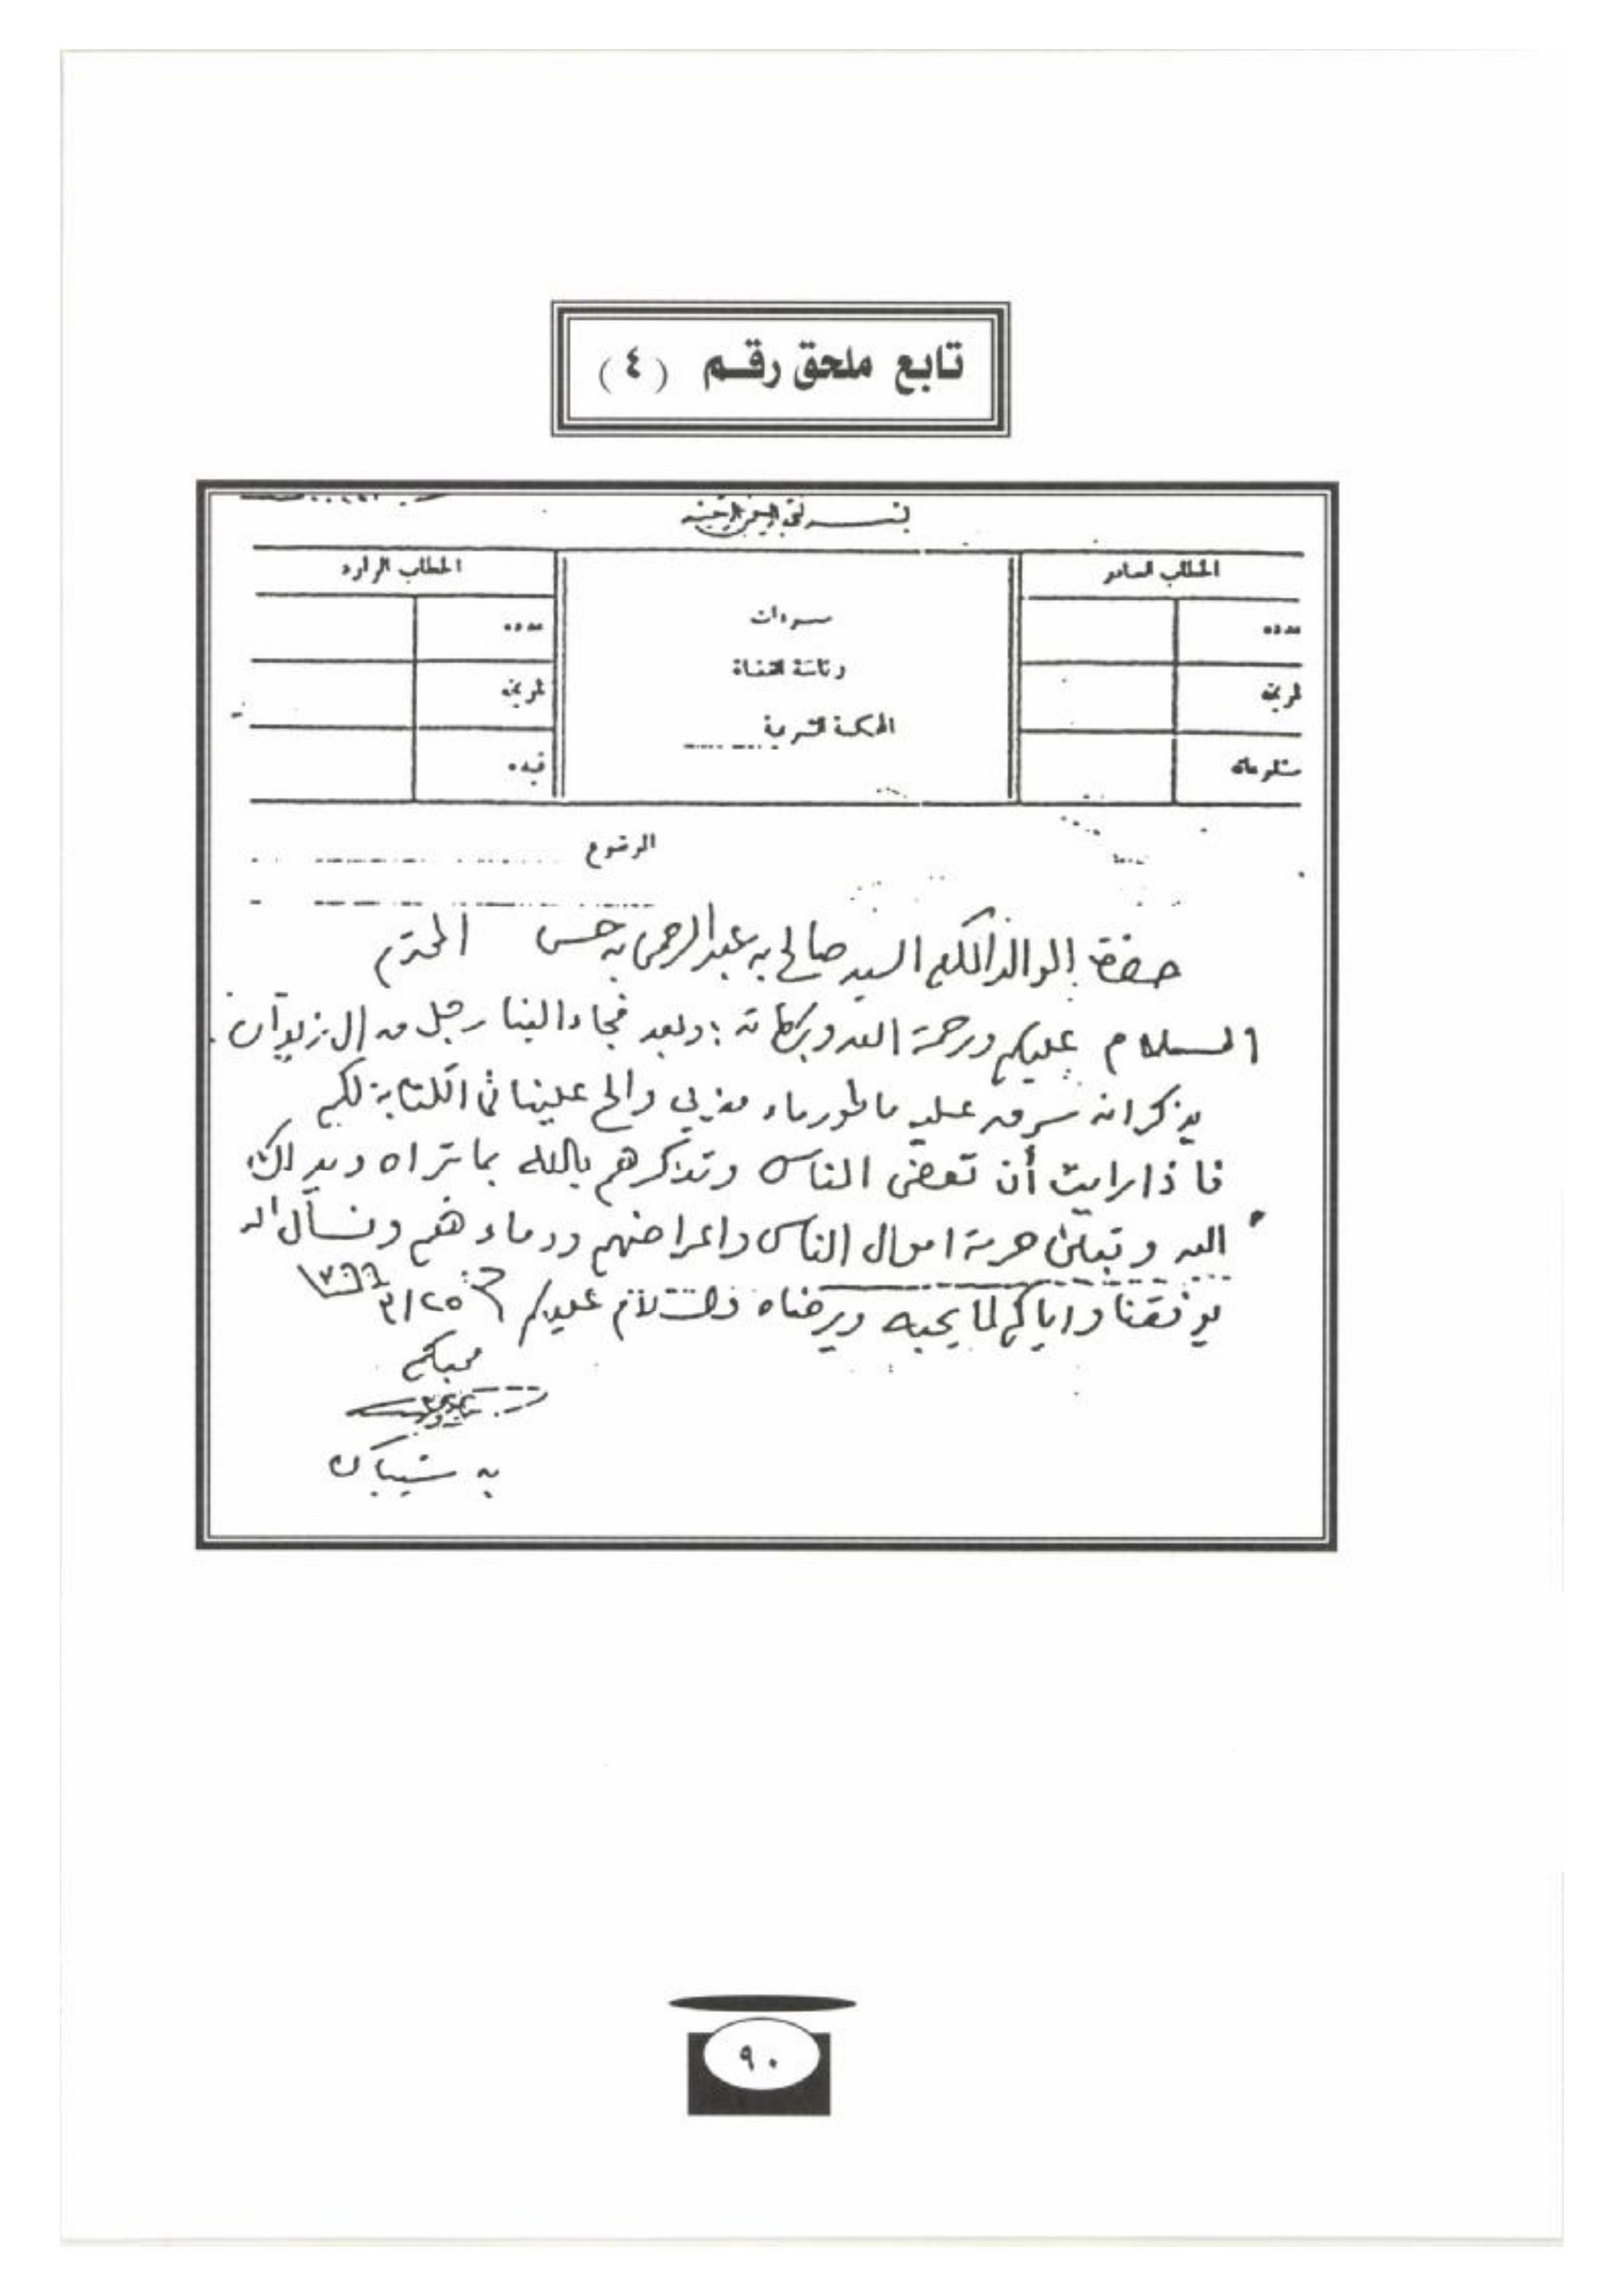 تابع ملحق رقم (٤)
بسم الله الرحمن الرحيم
الخطاب الصادر
عدده
تاريخه
مشفوعاته
رئاسة القضاة
المحكمة الشرعية
الخطاب الوارد
عدده
تاريخه
قيده
الموضوع
حضرة الوالد المكرم السيد صالح بن عبدالرحمن بن حسن المحترم
السلام عليكم ورحمة الله وبركاته ؛ وبعد فجاء الينا رجل من ال
يذكر انه سرق عليه ماطور ماء والح علينا في الكتابة لكم
فاذا رايت أن تعض الناس وتذكرهم بالله بما تراه ويراك
الله وتبين حرمة اموال الناس واعراضهم ودماءهم ونسأل الله
يوفقنا واياكم لما يحبه ويرضاه والسلام عليكم
محبكم
بن شيبان
٩٠